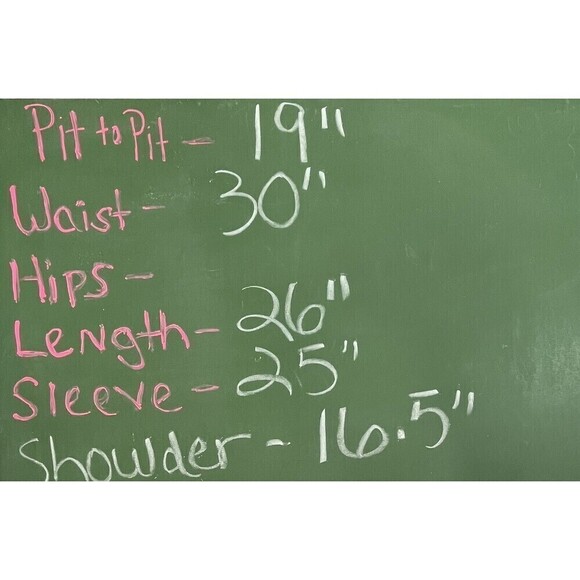 Pit to Pit - 19"
Waist - 30"
Hips -
Length - 26"
Sleeve - 25"
Shoulder - 16.5"